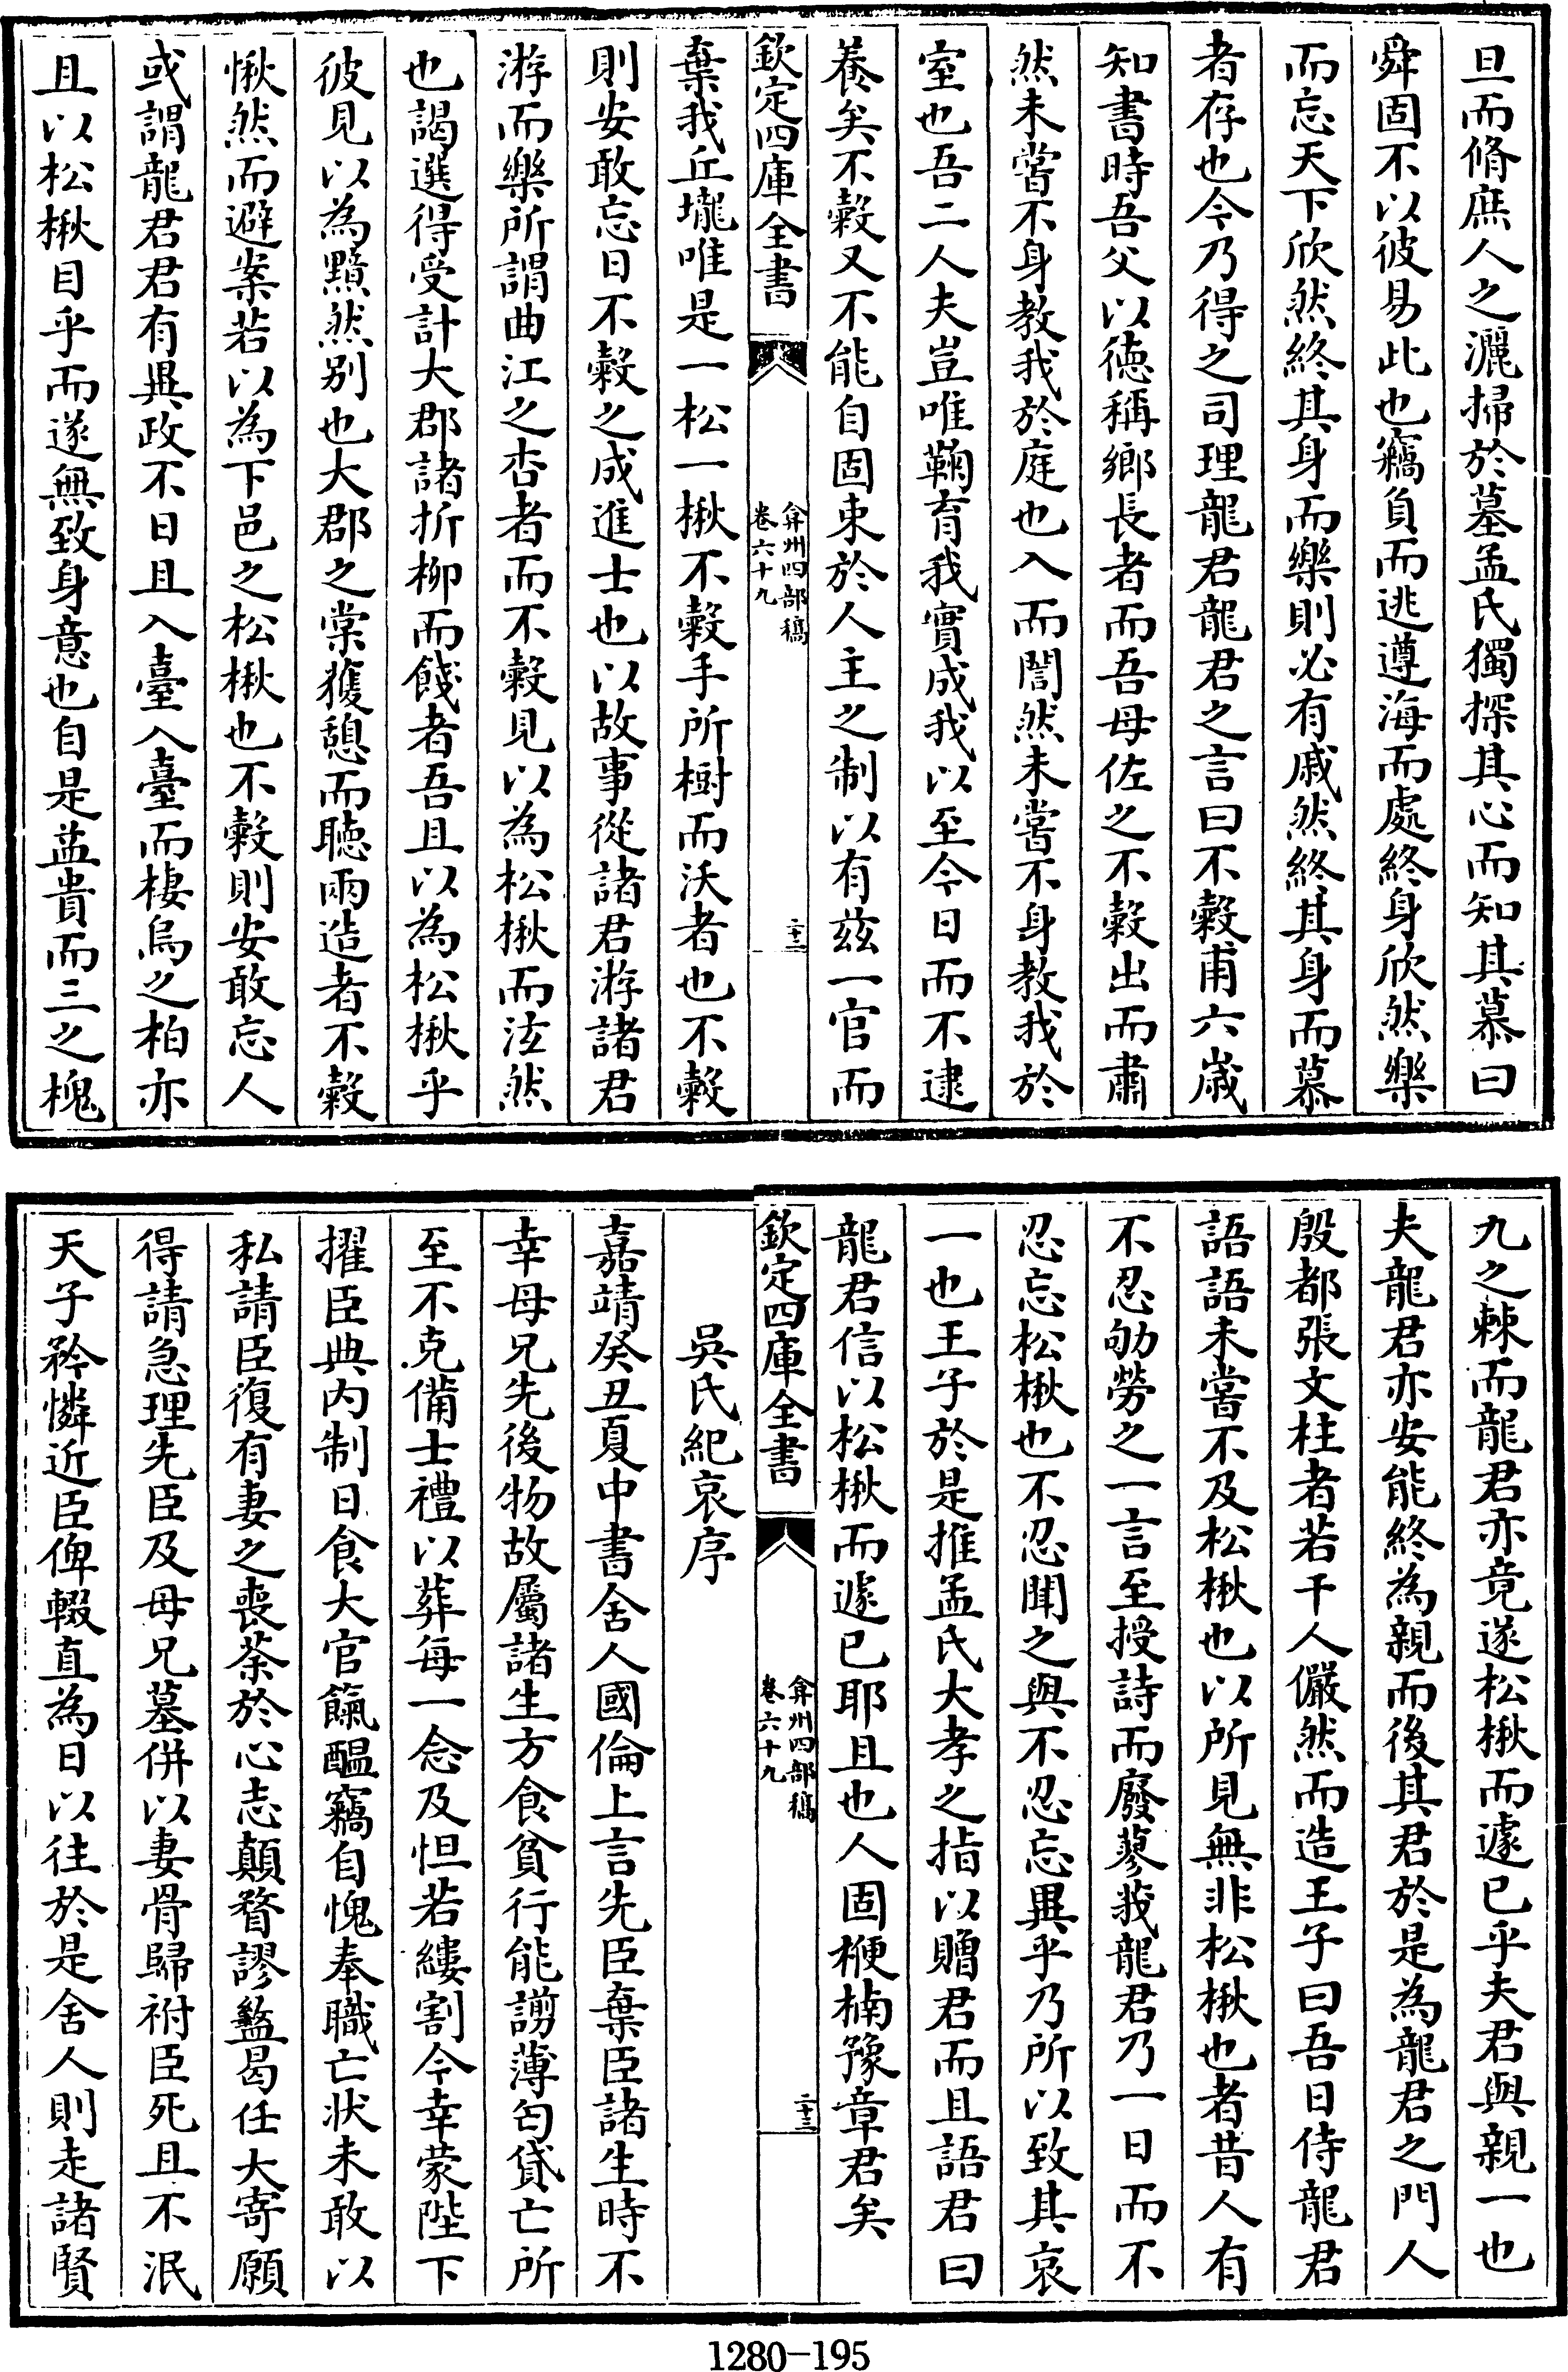 旦而脩庶人之灑掃於墓孟氏獨探其心而知其慕曰
舜固不以彼易此也竊負而逃遵海而處終身欣然樂
而忘天下欣然終其身而樂則必有戚然終其身而慕
者存也今乃得之司理龍君龍君之言曰不穀甫六歲
知書時吾父以德稱鄉長者而吾母佐之不穀出而肅
然未嘗不身教我於庭也入而誾然未嘗不身教我於
室也吾二人夫豈唯鞠育我實成我以至今日而不逮
養矣不穀又不能自固束於人主之制以有茲一官而
欽定四庫全書
弇州四部稿
卷六十九
二十二
棄我丘壠唯是一松一楸不穀手所樹而沃者也不穀
則安敢忘日不穀之成進士也以故事從諸君游諸君
游而樂所謂曲江之杏者而不穀見以為松楸而泫然
也謁選得受計大郡諸折柳而餞者吾且以為松楸乎
彼見以為黯然别也大郡之棠獲憩而聽兩造者不穀
愀然而避案若以為下邑之松楸也不穀則安敢忘人
或謂龍君君有異政不日且入臺入臺而棲烏之柏亦
且以松楸目乎而遂無致身意也自是葢貴而三之槐
九之棘而龍君亦竟遂松楸而遽已乎夫君與親一也
夫龍君亦安能終為親而後其君於是為龍君之門人
殷都張文柱者若干人儼然而造王子曰吾日侍龍君
語語未嘗不及松楸也以所見無非松楸也者昔人有
不忍劬勞之一言至授詩而廢蓼莪龍君乃一日而不
忍忘松楸也不忍聞之與不忍忘異乎乃所以致其哀
一也王子於是推孟氏大孝之指以贈君而且語君曰
龍君信以松楸而遽已耶且也人固楩楠豫章君矣
欽定四庫全書
弇州四部稿
卷六十九
二十三
吳氏紀哀序
嘉靖癸丑夏中書舍人國倫上言先臣棄臣諸生時不
幸母兄先後物故屬諸生方食貧行能謭薄匄貸亡所
至不克備士禮以葬每一念及怛若縷割今幸蒙陛下
擢臣典内制日食大官餼醖竊自愧奉職亡狀未敢以
私請臣復有妻之喪荼於心志顛瞀謬盭曷任大寄願
得請急理先臣及母兄墓併以妻骨歸祔臣死且不泯
天子矜憐近臣俾輟直為日以往於是舍人則走諸賢
1280-195